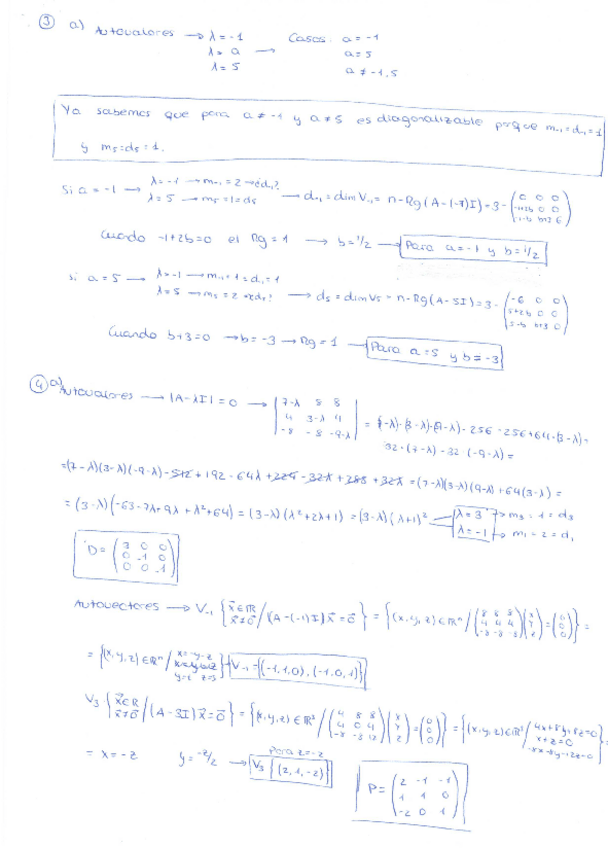 ③ a) Autovalores → λ = -1 Casos: a = -1
λ = a → a = 5
λ = 5 a ≠ -1, 5
Ya sabemos que para a ≠ -1 y a ≠ 5 es diagonalizable porque m₋₁ = d₋₁ = 1
y m₅ = d₅ = 1.
Si a = -1 → λ = -1 → m₋₁ = 2 → ¿d₋₁? → d₋₁ = dim V₋₁ = n - Rg (A - (-1)I) = 3 -
λ = 5 → m₅ = 1 = d₅
Cuando -1+2b = 0 el Rg = 1 → b = 1/2 → Para a = -1 y b = 1/2
Si a = 5 → λ = -1 → m₋₁ = 1 = d₋₁ = 1
λ = 5 → m₅ = 2 → d₅? → d₅ = dim V₅ = n - Rg (A - 5I) = 3 - (-6 0 0
5+2b 0 0
5-b b+3 0)
Cuando b+3 = 0 → b = -3 → Rg = 1 → Para a = 5 y b = -3
④ a) Autovalores → |A - λI| = 0 → |7-λ 8 8
4 3-λ 4
-8 -8 -9-λ| = (7-λ)·(3-λ)·(-9-λ) - 256 - 256 + 64·(3-λ) +
32·(7-λ) - 32 (-9-λ) =
= (3-λ)(-63 - 7λ + 9λ + λ² + 64) = (3-λ)(λ² + 2λ + 1) = (3-λ)(λ+1)² λ = 3 → m₃ = 1 = d₃
λ = -1 → m₁ = 2 = d₁
D = (3 0 0
0 -1 0
0 0 -1)
Autovectores → V₋₁ {x⃗ ∈ ℝ x⃗ ≠ 0⃗ / (A - (-1)I) x⃗ = 0⃗} = {(x, y, z) ∈ ℝⁿ / (8 8 8
4 4 4
-8 -8 -8) (x y z) = (0 0 0)} =
= {(x, y, z) ∈ ℝⁿ / x = -y - z} V₋₁ = {(-1, 1, 0), (-1, 0, 1)}
V₃ {x⃗ ∈ ℝ x⃗ ≠ 0⃗ / (A - 3I) x⃗ = 0⃗} = {(x, y, z) ∈ ℝ³ / (4 8 8
4 0 4
-8 -8 12) (x y z) = (0 0 0)} = {(x, y, z) ∈ ℝ³ / 4x + 8y + 8z = 0
x + z = 0
-8x - 8y - 12z = 0} =
= x = -z y = -z/2 → para z = -2
V₃ (2, 1, -2)
P = (2 -1 -1
1 1 0
-2 0 1)